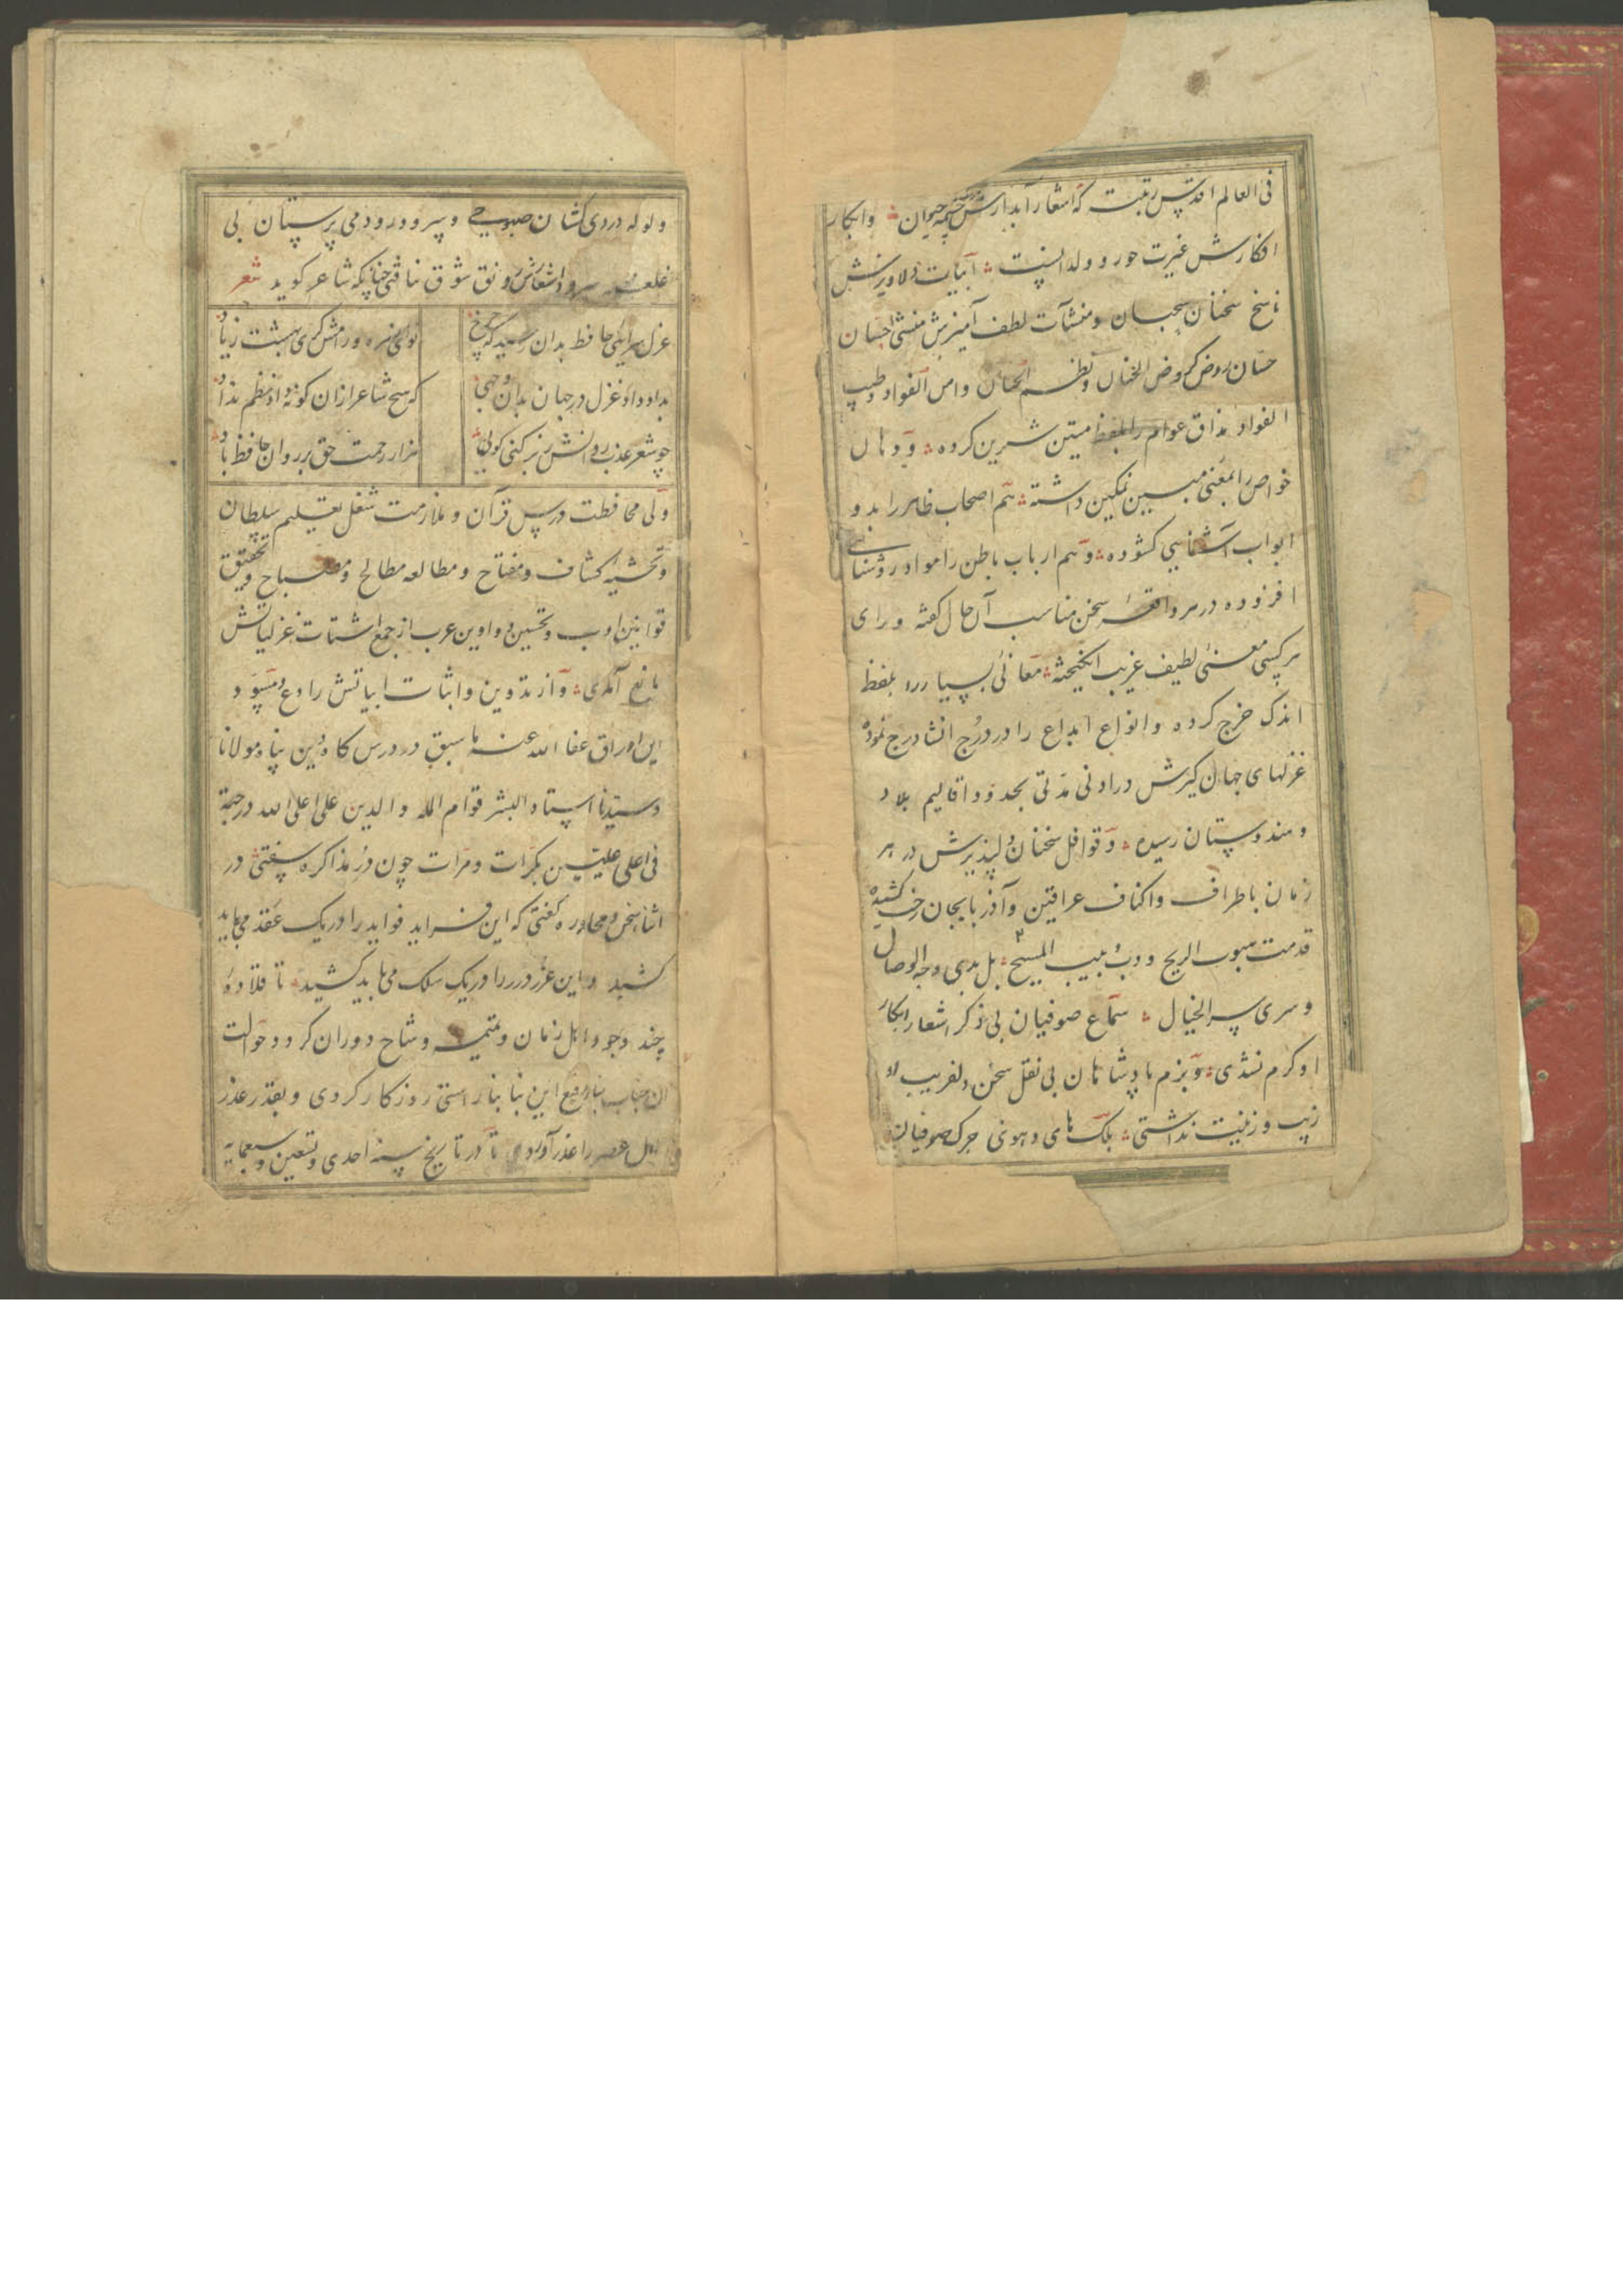 فی العالم اقدس رتبت که اشعار آبدارش چشمه حیوان و ابکار
افکارش غیرت حور و ولدانست ابیات دلاویزش
ناسخ سخنان سحبان و منشآت لطف آمیزش منشی احسان
حسان روض کروض الجنان و نظم الجنان وامن الفواد و طیب
الفواد مذاق عوام را بلفظ متین شیرین کرده و دهان
خواص را بمعنی مبین نمکین داشته هم اصحاب ظاهر را بدو
ابواب آشنایی کشوده و هم ارباب باطن را مواد روشنایی
افزوده در هر واقعه سخن مناسب آن حال کفته و برای
هر کسی معنی لطیف غریب انکیخته معانی بسیار را بلفظ
اندک خرج کرده و انواع ابداع را در درج انشا درج نموده
غزلهای جهان کیرش در ادنی مدتی بحدود اقالیم بلاد
و هندوستان رسیده و قوافل سخنان دلپذیرش در هر
زمان باطراف و اکناف عراقین و آذربایجان رخت کشیده
قدمت هبوب الریح و دب دبیب المسیح بل بدی وجه الوصال
و سری سر الخیال سماع صوفیان بی ذکر اشعار ابکار
او کرم نشدی و بزم پادشاهان بی نقل سخن دلفریب او
زیب و زینت نداشتی بلک های و هوی صوفیان
ولوله دردی کشان صبوحی و سرود رود می پرستان بی
غلغله سرود اشعارش رونق شوق نیافتی چنانکه شاعر کوید شعر
غزل سرایی حافظ بدان رسید که چرخ نوای زهره و رامش کری بهشت زیاد
بداد داد غزل در جهان بدان وجهی که هیچ شاعر ازان کونه داد نظم نداد
چو شعر عذب روانش ز بر کنی کویی هزار رحمت حق بر روان حافظ باد
ولی محافظت درس قرآن و ملازمت شغل تعلیم سلطان
و تحشیه کشاف و مفتاح و مطالعه مطالع و مصباح و تحقیق
قوانین ادب و تحسین دواوین عرب از جمع اشتات غزلیاتش
مانع آمدی و از تدوین و اثبات ابیاتش رادع و مسود
این اوراق عفا الله عنه ما سبق در درس کاه دین پناه مولانا
و سیدنا استاد البشر قوام المله و الدین علی اعلی الله درجته
فی اعلی علیین بکرات و مرات چون در مذاکره سفتی در
اثناء سخن و محاوره کفتی که این فراید فواید را در یک عقد می باید
کشید و این غرر درر را در یک سلک می باید کشید تا قلاده
چند وجود اهل زمان و تمیمه وشاح دوران کردد و حوالت
ان جناب بنا رفع این بنا بنا راستی روزکار کردی و بغدر عذر
اهل عصر را عذر آوردی تا در تاریخ سنه احدی و تسعین و سبعمایه